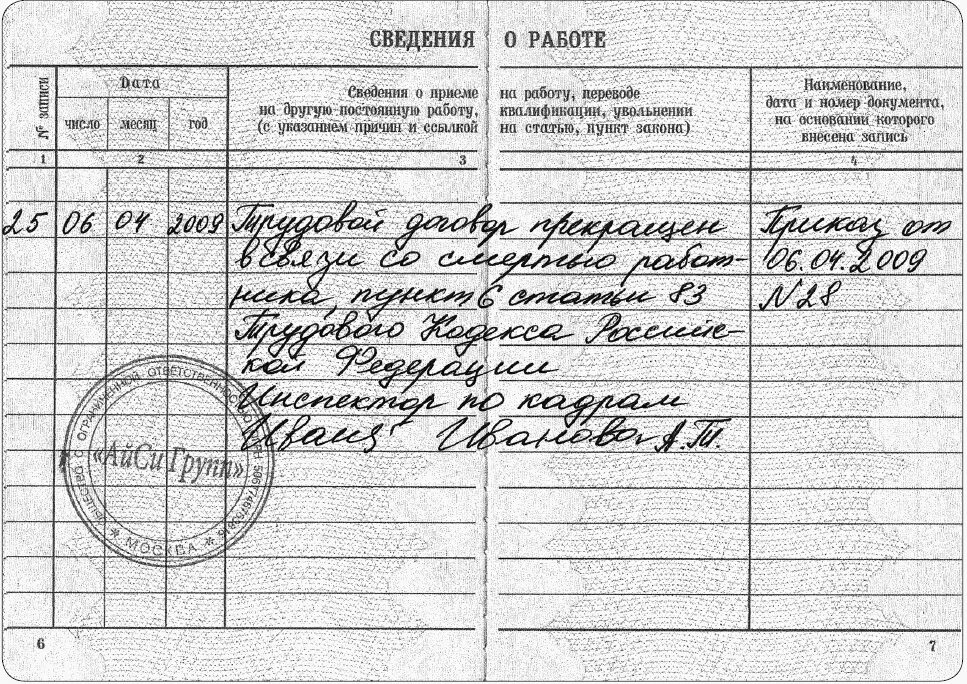 СВЕДЕНИЯ О РАБОТЕ
№ записи
Дата
число месяц год
Сведения о приеме на работу, переводе
на другую постоянную работу, квалификации, увольнении
(с указанием причин и ссылкой на статью, пункт закона)
Наименование,
дата и номер документа,
на основании которого
внесена запись
1 2 3 4
25 06 04 2009 Трудовой договор прекращен Приказ от
в связи со смертью работ- 06.04.2009
ника, пункт 6 статьи 83 N28
Трудового Кодекса Российс-
кой Федерации
Инспектор по кадрам
Иванова А.Т.
ОБЩЕСТВО С ОГРАНИЧЕННОЙ ОТВЕТСТВЕННОСТЬЮ
«АйСи Групп»
* МОСКВА *
6 7